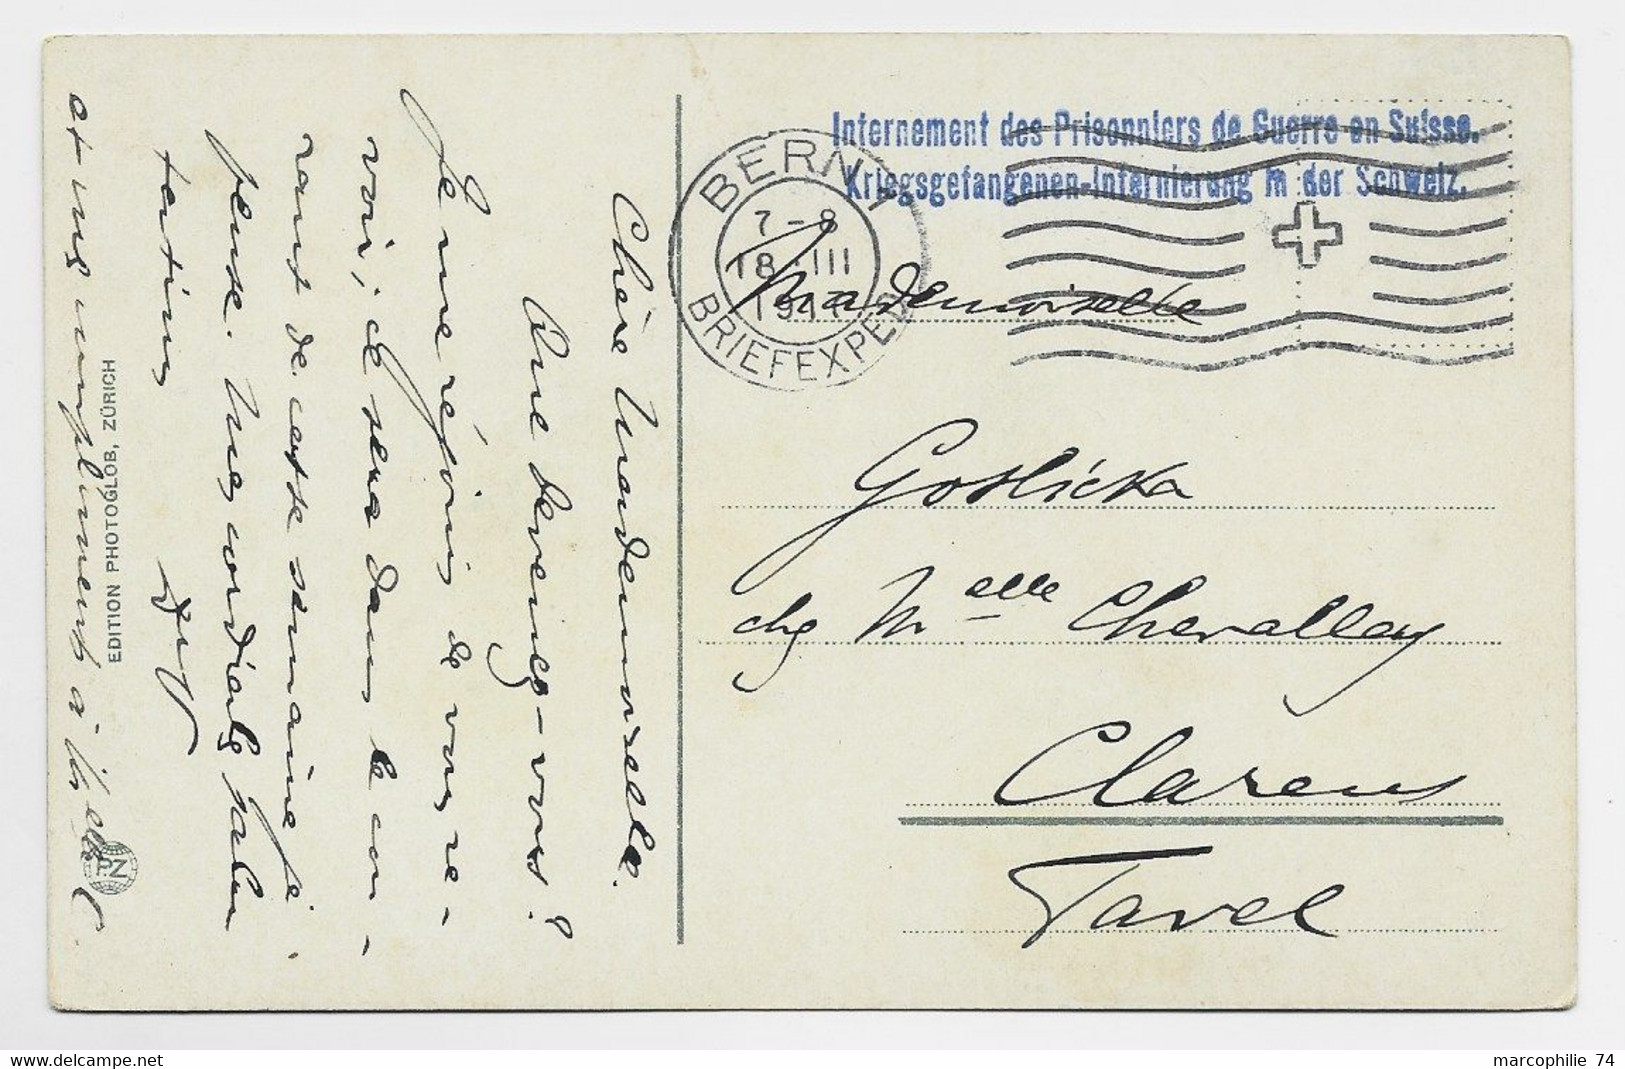 Internement des Prisonniers de Guerre en Suisse.
Kriegsgefangenen-Internierung in der Schweiz.
BERN 1
7-8
18 III
1917
BRIEFEXPED.
Mademoiselle
Gotlicka
chz Melle Chevalley
Clarens
Tavel
Chère Mademoiselle.
Que devenez-vous?
Je me réjouis de vous re-
voir; ce sera dans le cou-
rant de cette semaine je
pense. Mes cordiales salu
tations
et mes compliments à
EDITION PHOTOGLOB, ZÜRICH
PZ
marcophilie 74